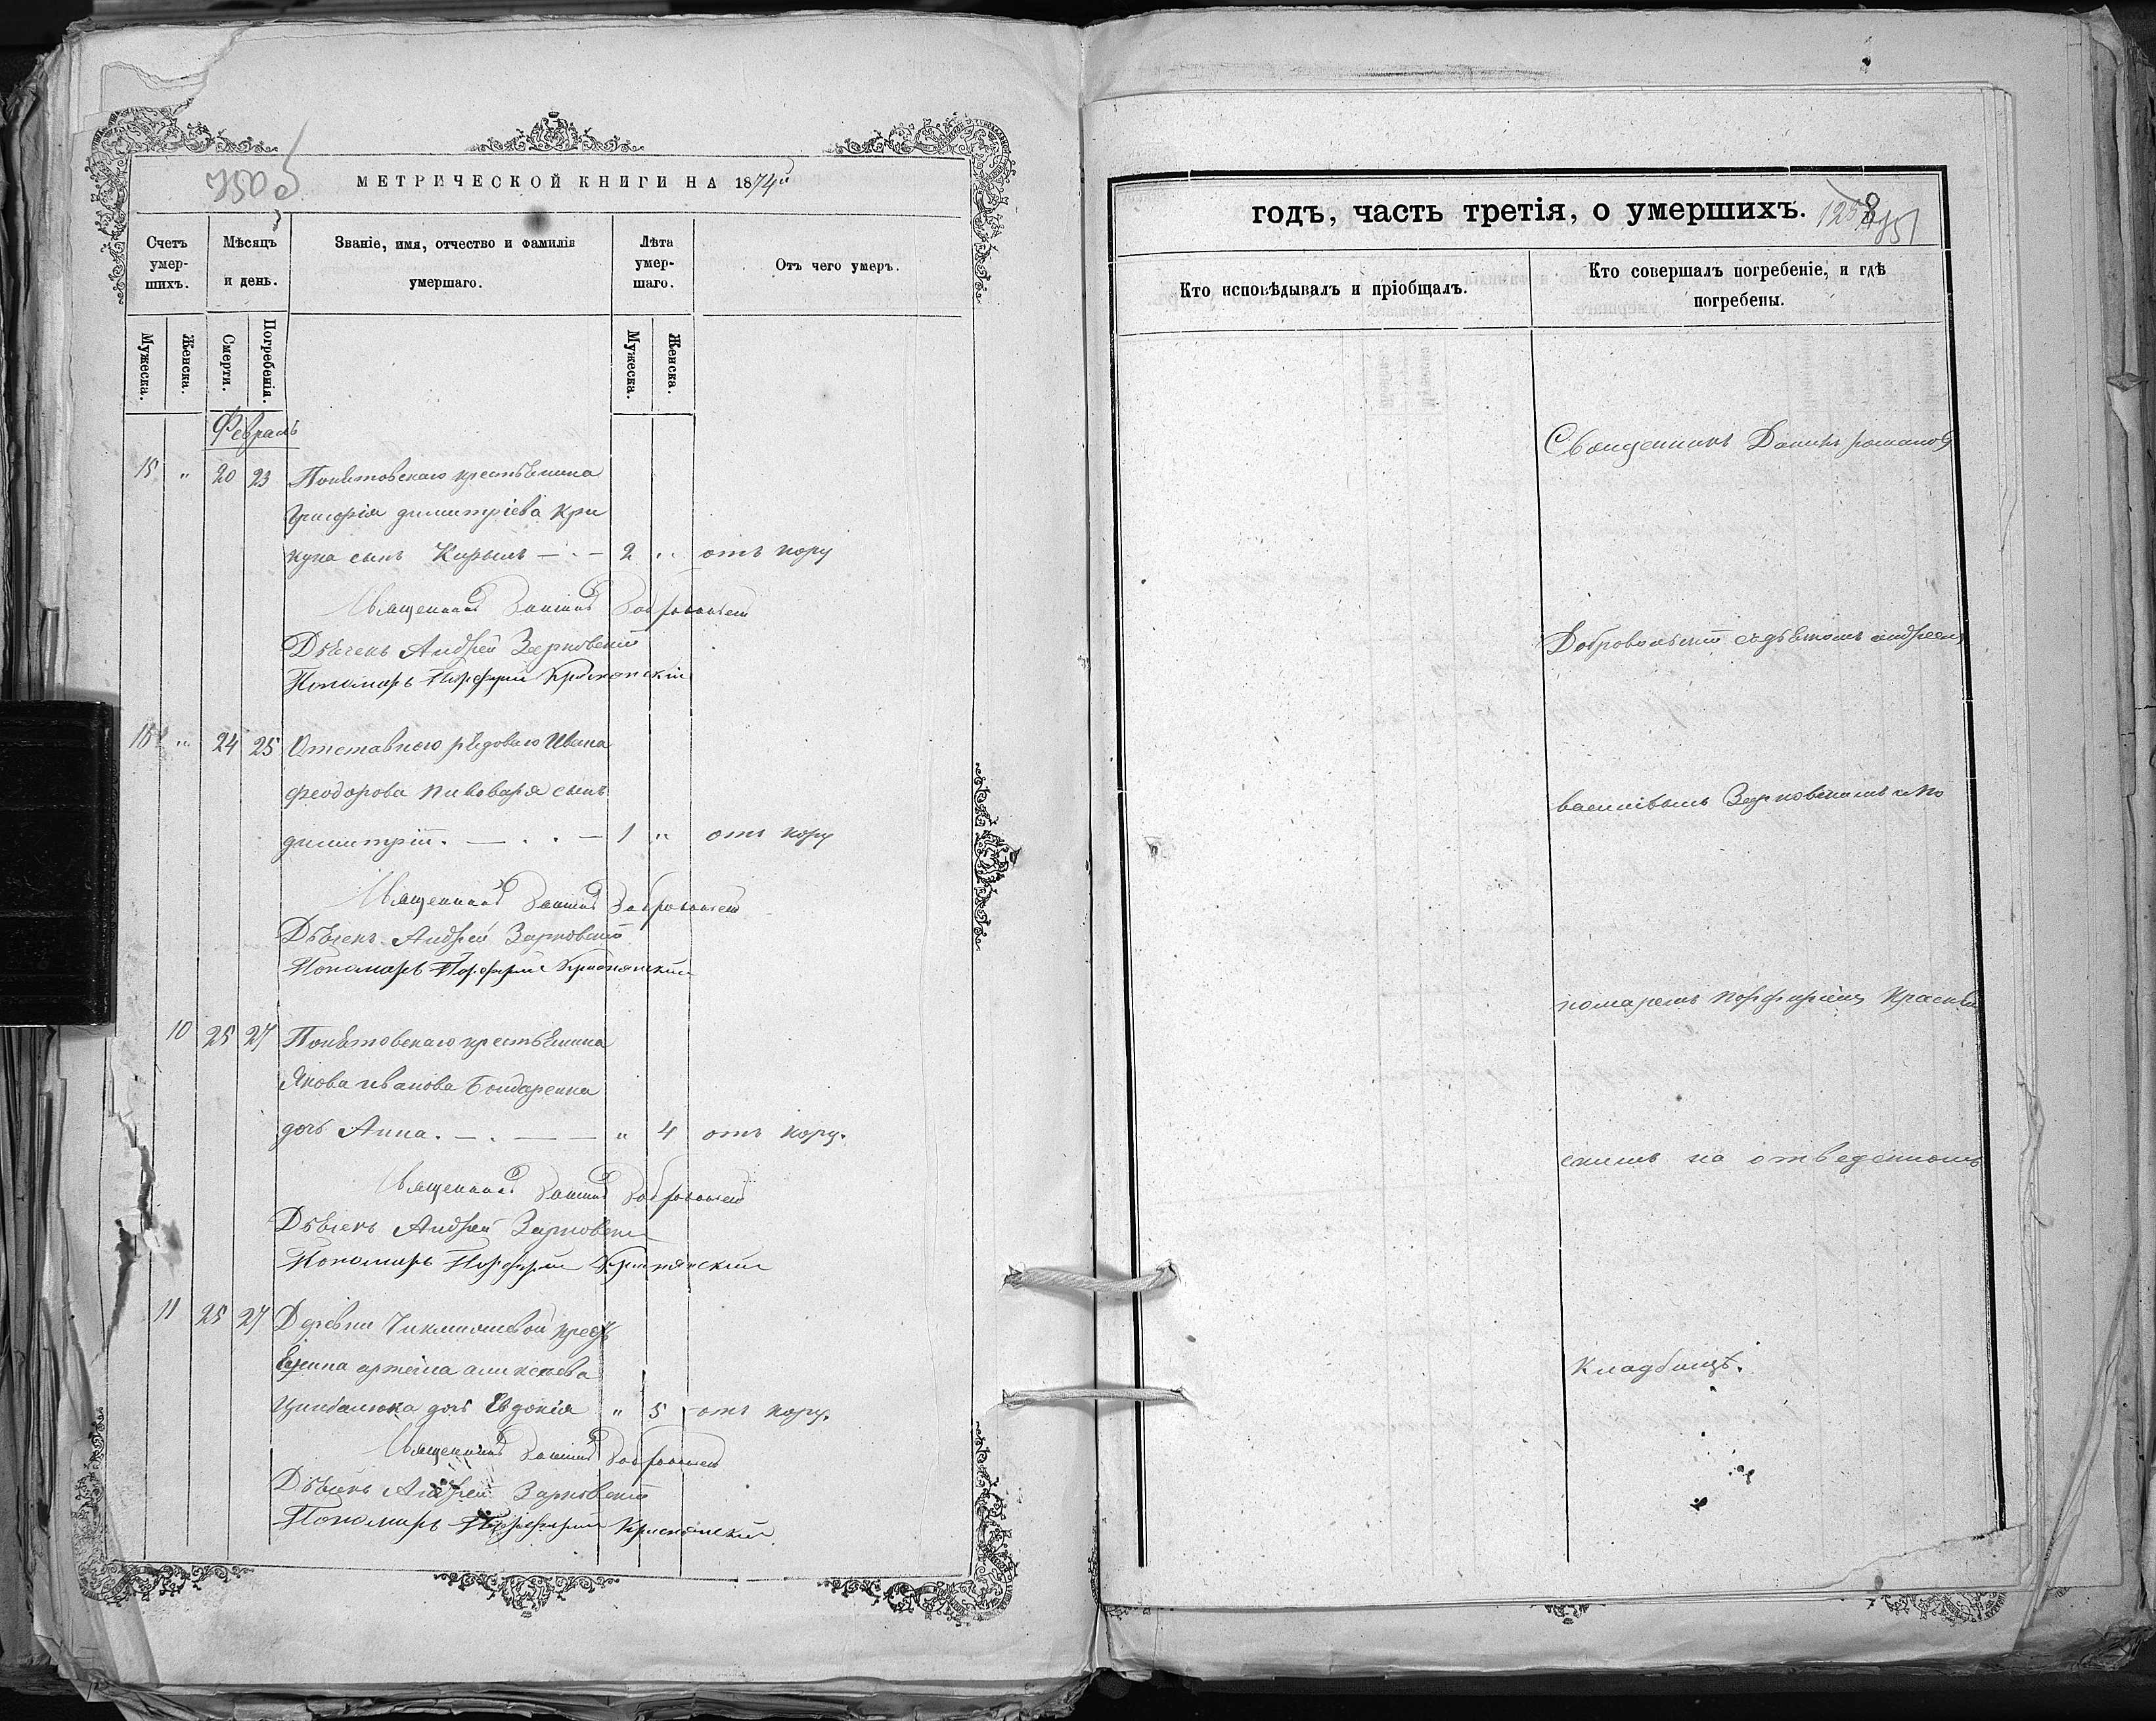 750 б
МЕТРИЧЕСКОЙ КНИГИ НА 1874й
Счетъ умер-шихъ.
Мѣсяцъ и день.
Званіе, имя, отчество и фамилія умершаго.
Лѣта умер-шаго.
Отъ чего умеръ.
Мужеска.
Женска.
Смерти.
Погребенія.
Мужеска.
Женска.
Февраль
15 " 20 23
крестьянина
Григорія димитріева Кри
куна сынъ Кирылъ — 2 " отъ кору
Священникъ Даніилъ Добровольскій
Дьячекъ Андрей Зарновскій
Пономарь Порфирий
" 24 25 Отставного рядоваго Ивана
феодорова пивоваря сынъ
димитрій. — 1 " отъ кору
Священникъ Даніилъ Добровольскій
Дьячекъ Андрей Зарновскій
Пономарь Порфирий
10 25 27
крестьянина
Якова иванова Бондаренка
дочь Анна. — " 4 отъ кору.
Священникъ Даніилъ Добровольскій
Дьячекъ Андрей Зарновскій
Пономарь Порфирий
11 25 27 Деревни
артема алексѣева
Цимбалюка дочь Евдокія " 5 отъ кору.
Священникъ Даніилъ Добровольскій
Дьячекъ Андрей Зарновскій
Пономарь Порфирий
годъ, часть третія, о умершихъ.
Кто исповѣдывалъ и пріобщалъ.
Кто совершалъ погребеніе, и гдѣ погребены.
Священникъ Даніилъ романовъ
Добровольскій съ дьячкомъ андреемъ
Зарновскимъ и по
номаремъ порфиріемъ
скимъ на отведенномъ
Кладбищѣ.